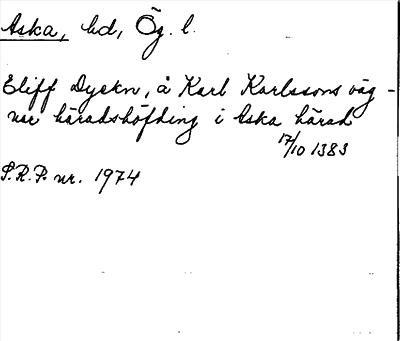 Aska, hd, Ög. l.
Eliff Dyekn, å Karl Karlssons väg-
nar häradshöfding i Aska härad
17/10 1383
S.R.P. nr. 1974